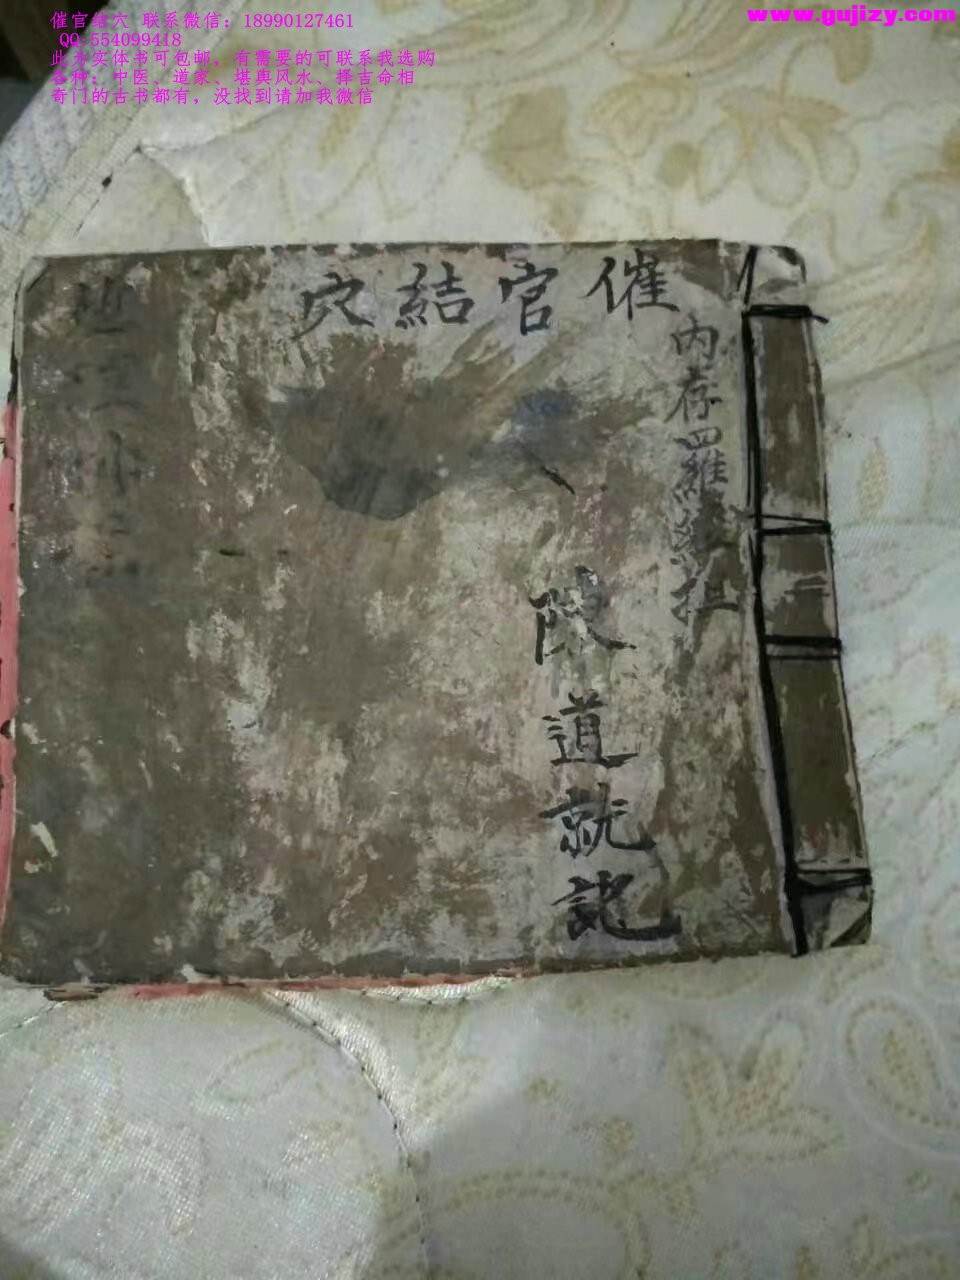 催官结穴 联系微信：18990127461
QQ:554099418
此为实体书可包邮，有需要的可联系我选购
各种：中医、道家、堪舆风水、择吉命相
奇门的古书都有，没找到请加我微信
www.gujizy.com
催官結穴
內存羅經
陳道就記